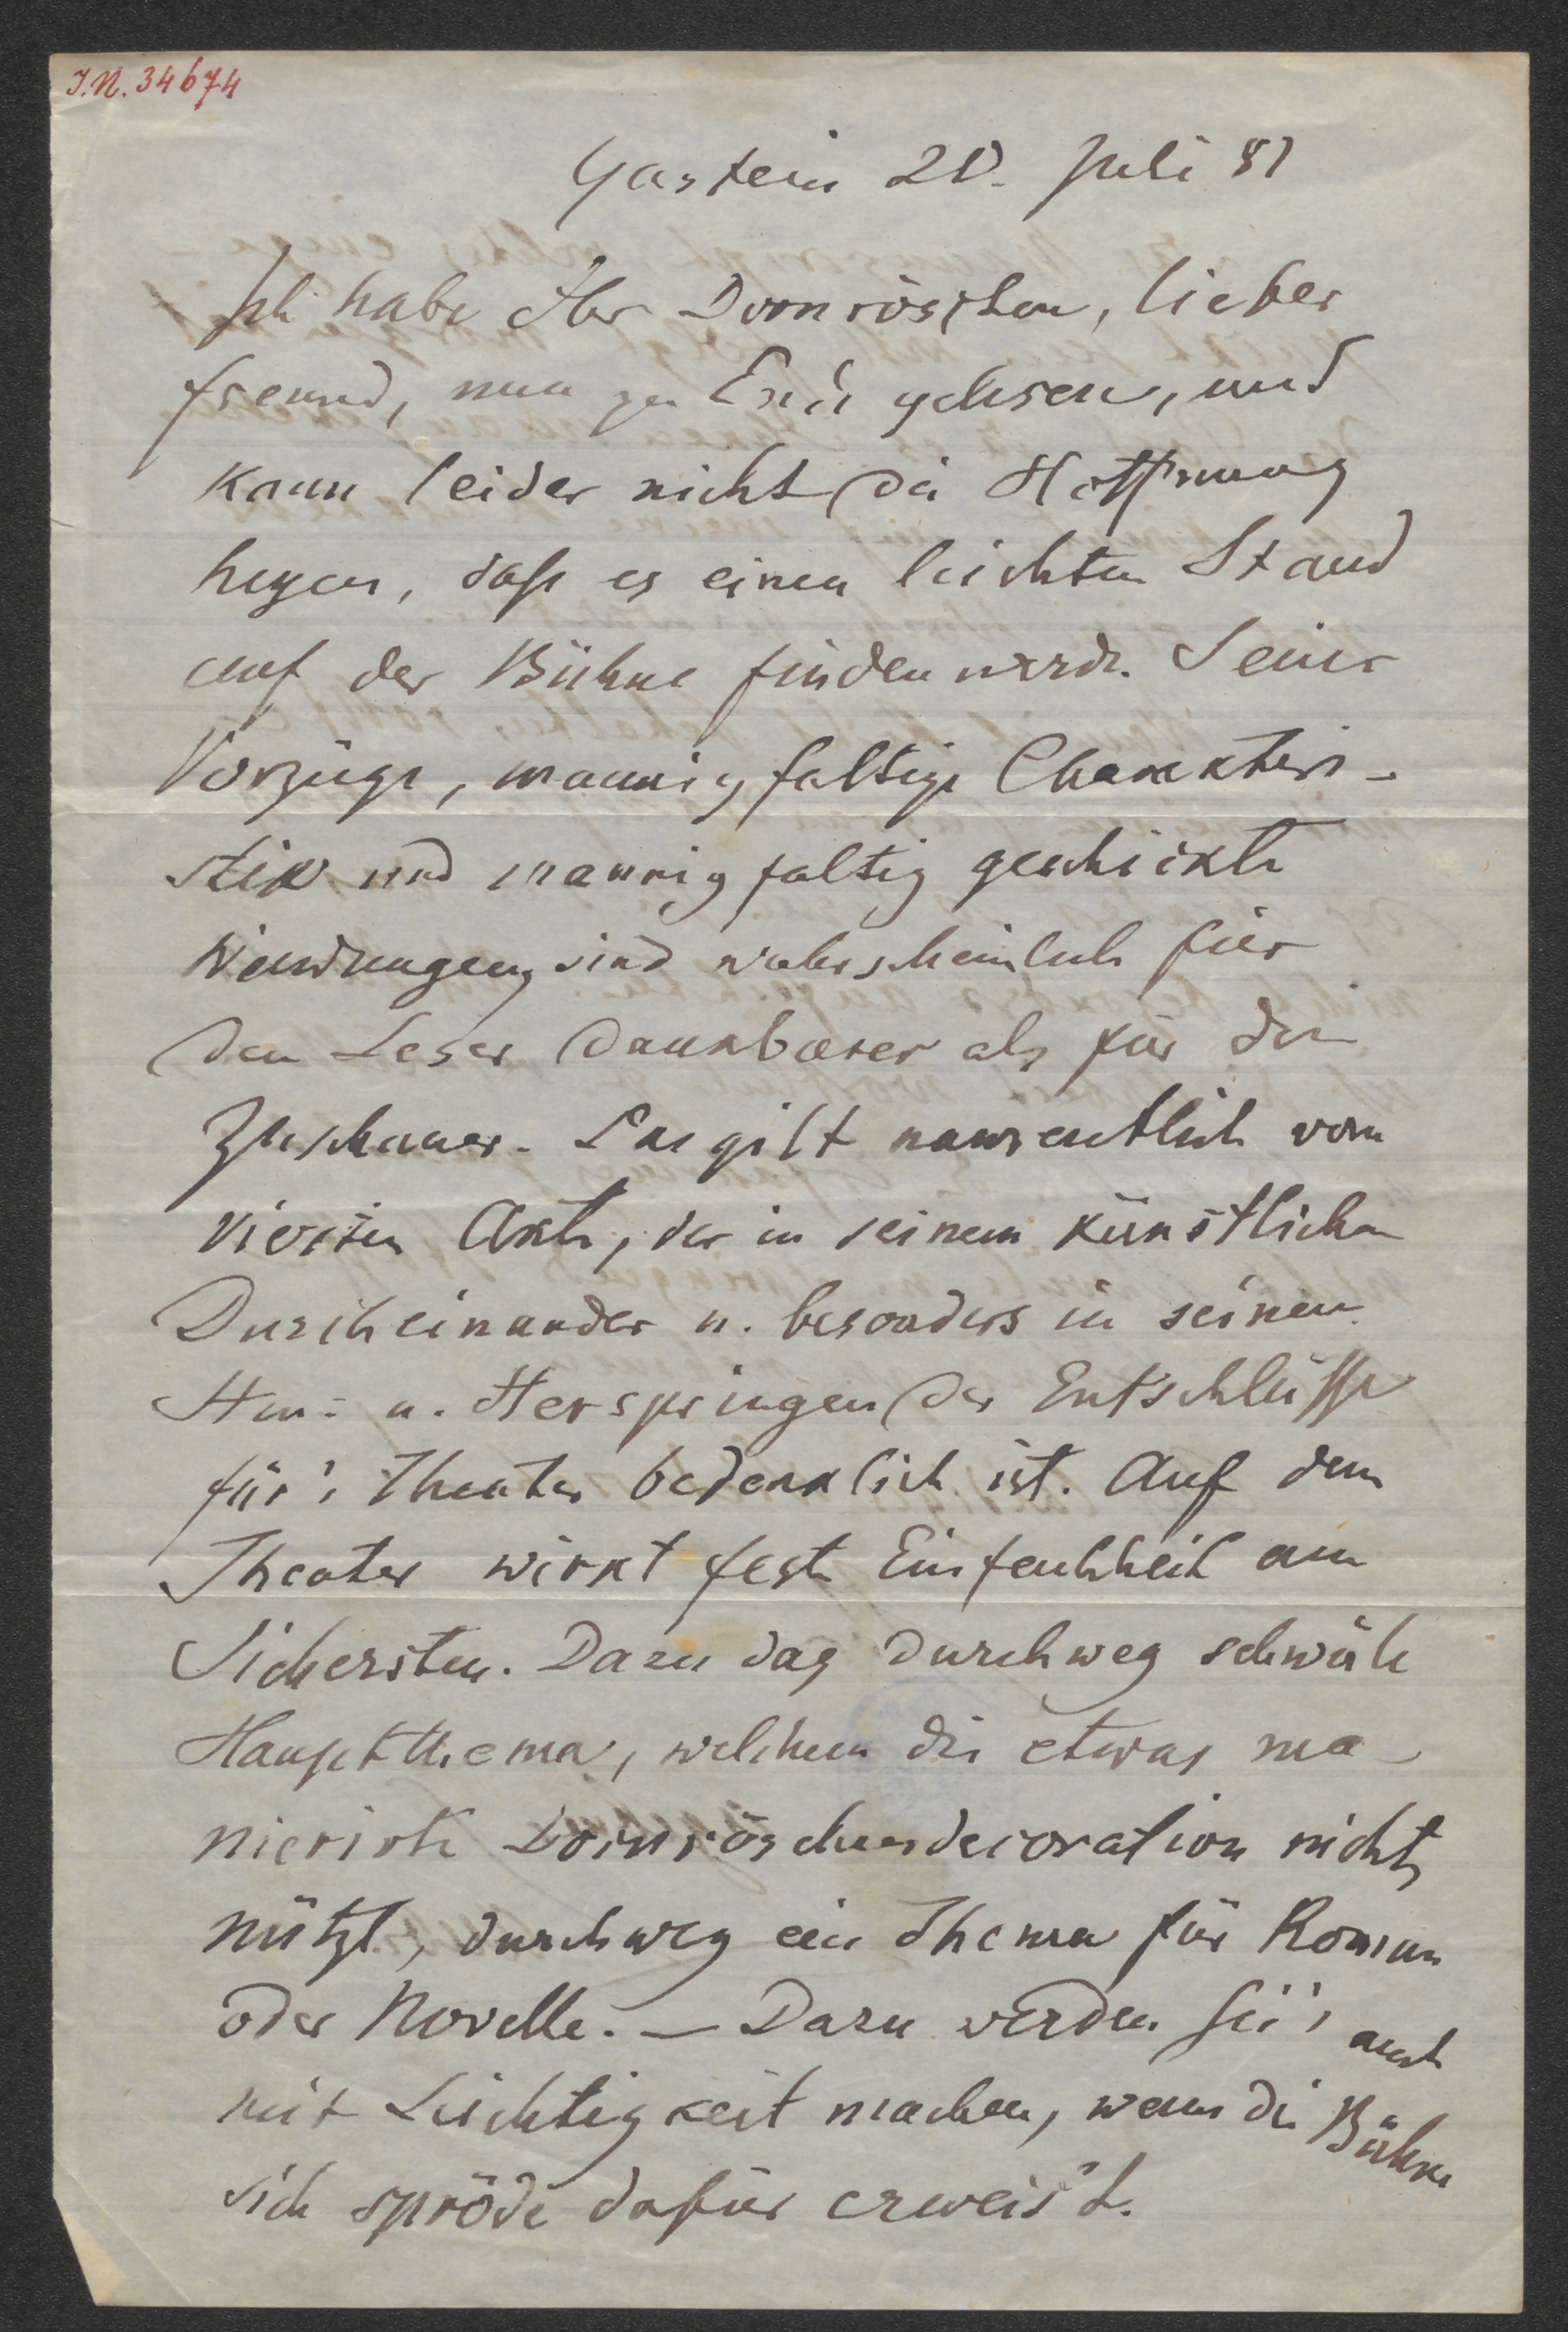 J.N. 34674
Gastein 20. Juli 81
Ich habe Ihr Dornröschen, lieber
Freund, nun zu Ende gelesen, und
kann leider nicht die Hoffnung
hegen, daß es einen leichten Stand
auf der Bühne finden werde. Seine
Vorzüge, mannigfaltige Charakteri-
stik und mannigfaltig geschickte
Wendungen, sind wahrscheinlich für
den Leser dankbarer als für den
Zuschauer. Das gilt namentlich vom
vierten Akte, der in seinem künstlichen
Durcheinander u. besonders in seinem
Hin- u. Herspringen der Entschlüsse
für's Theater bedenklich ist. Auf dem
Theater wirkt feste Einfachheit am
Sichersten. Dazu das durchweg schwüle
Hauptthema, welchem die etwas ma-
nierirte Dornröschendecoration nichts
nützt, durchweg ein Thema für Roman
oder Novelle. — Dazu werden Sie's auch
mit Leichtigkeit machen, wenn die Bühne
sich spröde dafür erweis't.